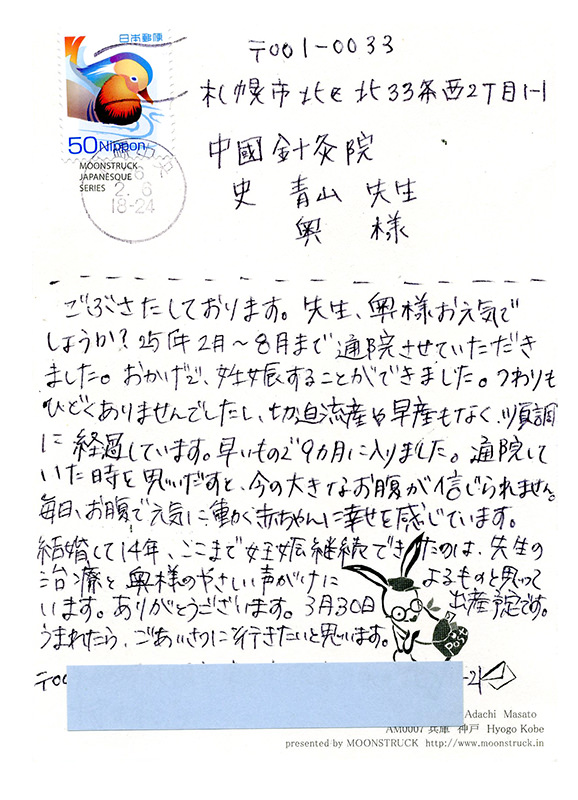 日本郵便
50 Nippon
MOONSTRUCK
JAPANESQUE
SERIES
2. 6
18-24
〒001-0033
札幌市北区北33条西2丁目1-1
中國針灸院
史 青山 先生
奥 様
ごぶさたしております。先生、奥様お元気で
しょうか？25年2月～8月まで通院させていただき
ました。おかげで、妊娠することができました。つわりも
ひどくありませんでしたし、切迫流産や早産もなく、順調
に経過しています。早いもので9カ月に入りました。通院して
いた時を思いだすと、今の大きなお腹が信じられません。
毎日、お腹で元気に働く赤ちゃんに幸せを感じています。
結婚して14年、ここまで妊娠継続できたのは、先生の
治療と奥様のやさしい声がけによるものと思って
います。ありがとうございます。3月30日出産予定です。
うまれたら、ごあいさつに行きたいと思います。
〒00
Adachi Masato
AM0007 兵庫 神戸 Hyogo Kobe
presented by MOONSTRUCK http://www.moonstruck.in